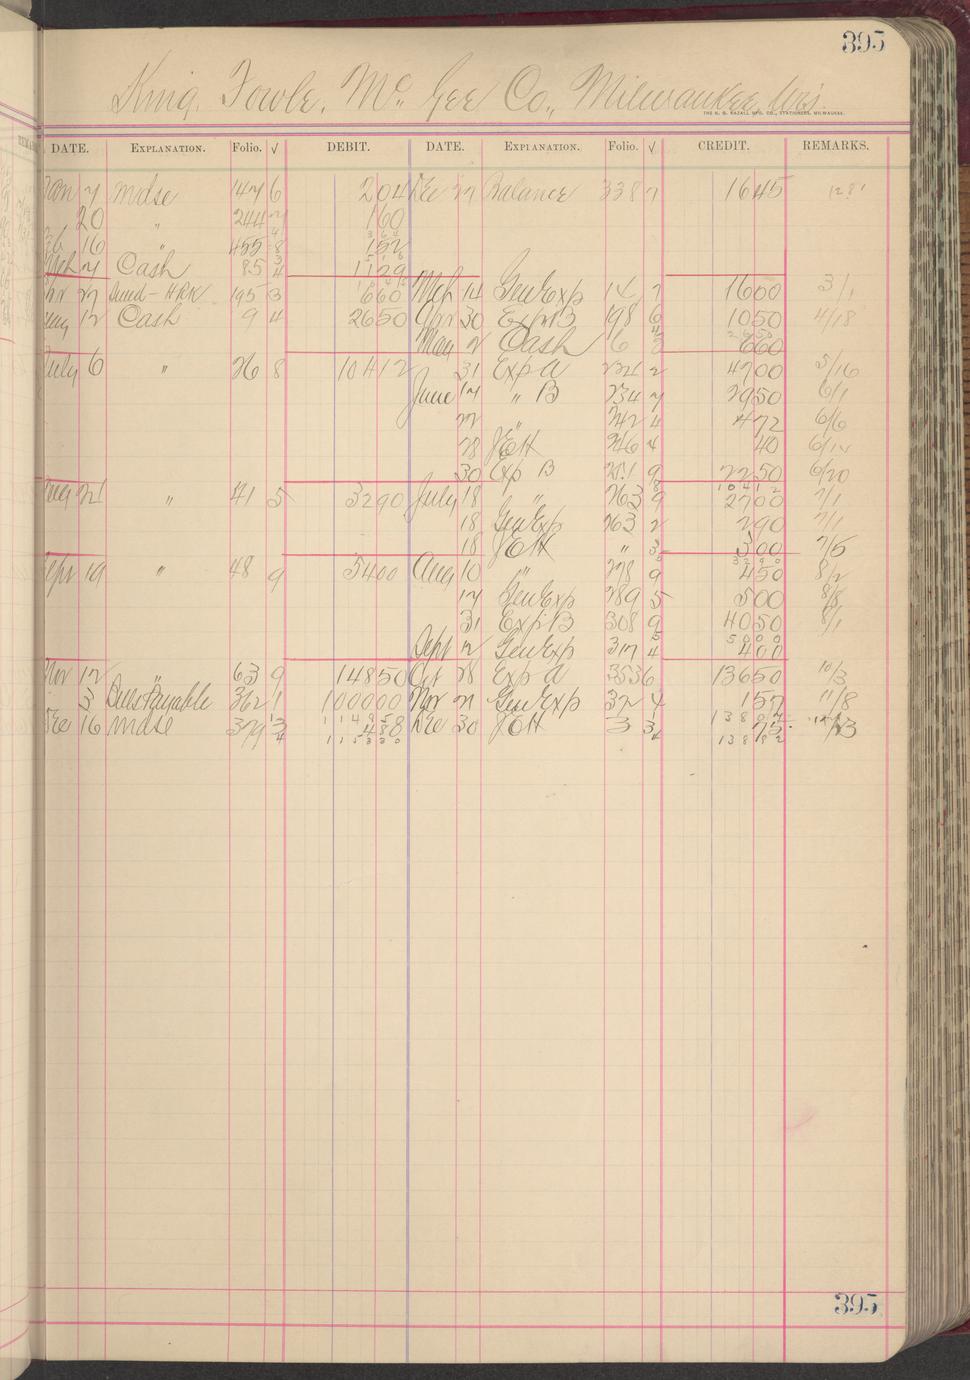 395
King, Fowle, McGee Co., Milwaukee, Wis.
THE H. G. RAZALL MFG. CO., STATIONERS, MILWAUKEE.
DATE. EXPLANATION. Folio. √ DEBIT. DATE. EXPLANATION. Folio. √ CREDIT. REMARKS.
Jan 7 Mdse 147 6 204 Dec 27 Balance 338 7 1645
20 " 244 7 160
Feb 16 " 455 8 152
Mch 7 Cash 85 1129
Apr 27 Sund-HRK 195 3 660 Mch 14 GenExp 14 7 1600 3/1
Aug 12 Cash 9 4 2650 Apr 30 Exp B 198 6 1050 4/18
May 2 Cash 6 660
July 6 " 26 8 10412 31 Exp A 221 2 4700 5/16
June 17 " B 234 7 2950 6/1
22 " 242 4 472 6/6
28 JEH 246 4 40 6/12
30 Exp B 251 9 2250 6/20
10412
Aug 21 " 41 5 3290 July 18 " 263 9 2700 7/1
18 GenExp 263 2 290 7/1
18 JEH " 3 300 7/5
3290
Sept 19 " 48 9 5400 Aug 10 " 278 9 450 8/2
17 GenExp 289 5 500 8/8
31 Exp B 308 9 4050 8/1
5000
Sept 12 GenExp 317 4 400
Nov 12 " 63 9 14850 Oct 28 Exp A 353 6 13650 10/3
3 Bills Payable 362 1 100000 Nov 21 GenExp 372 4 157 11/8
114950 13807
Dec 16 Mdse 379 3 480 Dec 30 JEH 3 3 75
115330 13882
395